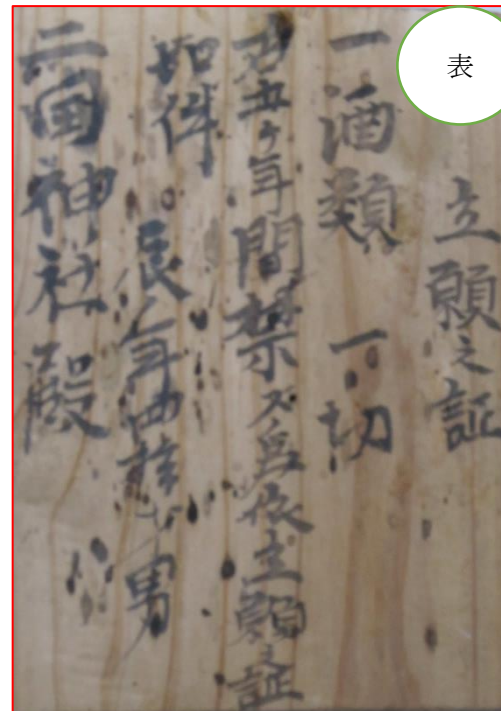 表
立願之証
一酒類 一切
五ヶ年間禁ズ為依立願之証
如件
辰ノ年四拾男
二面神社殿